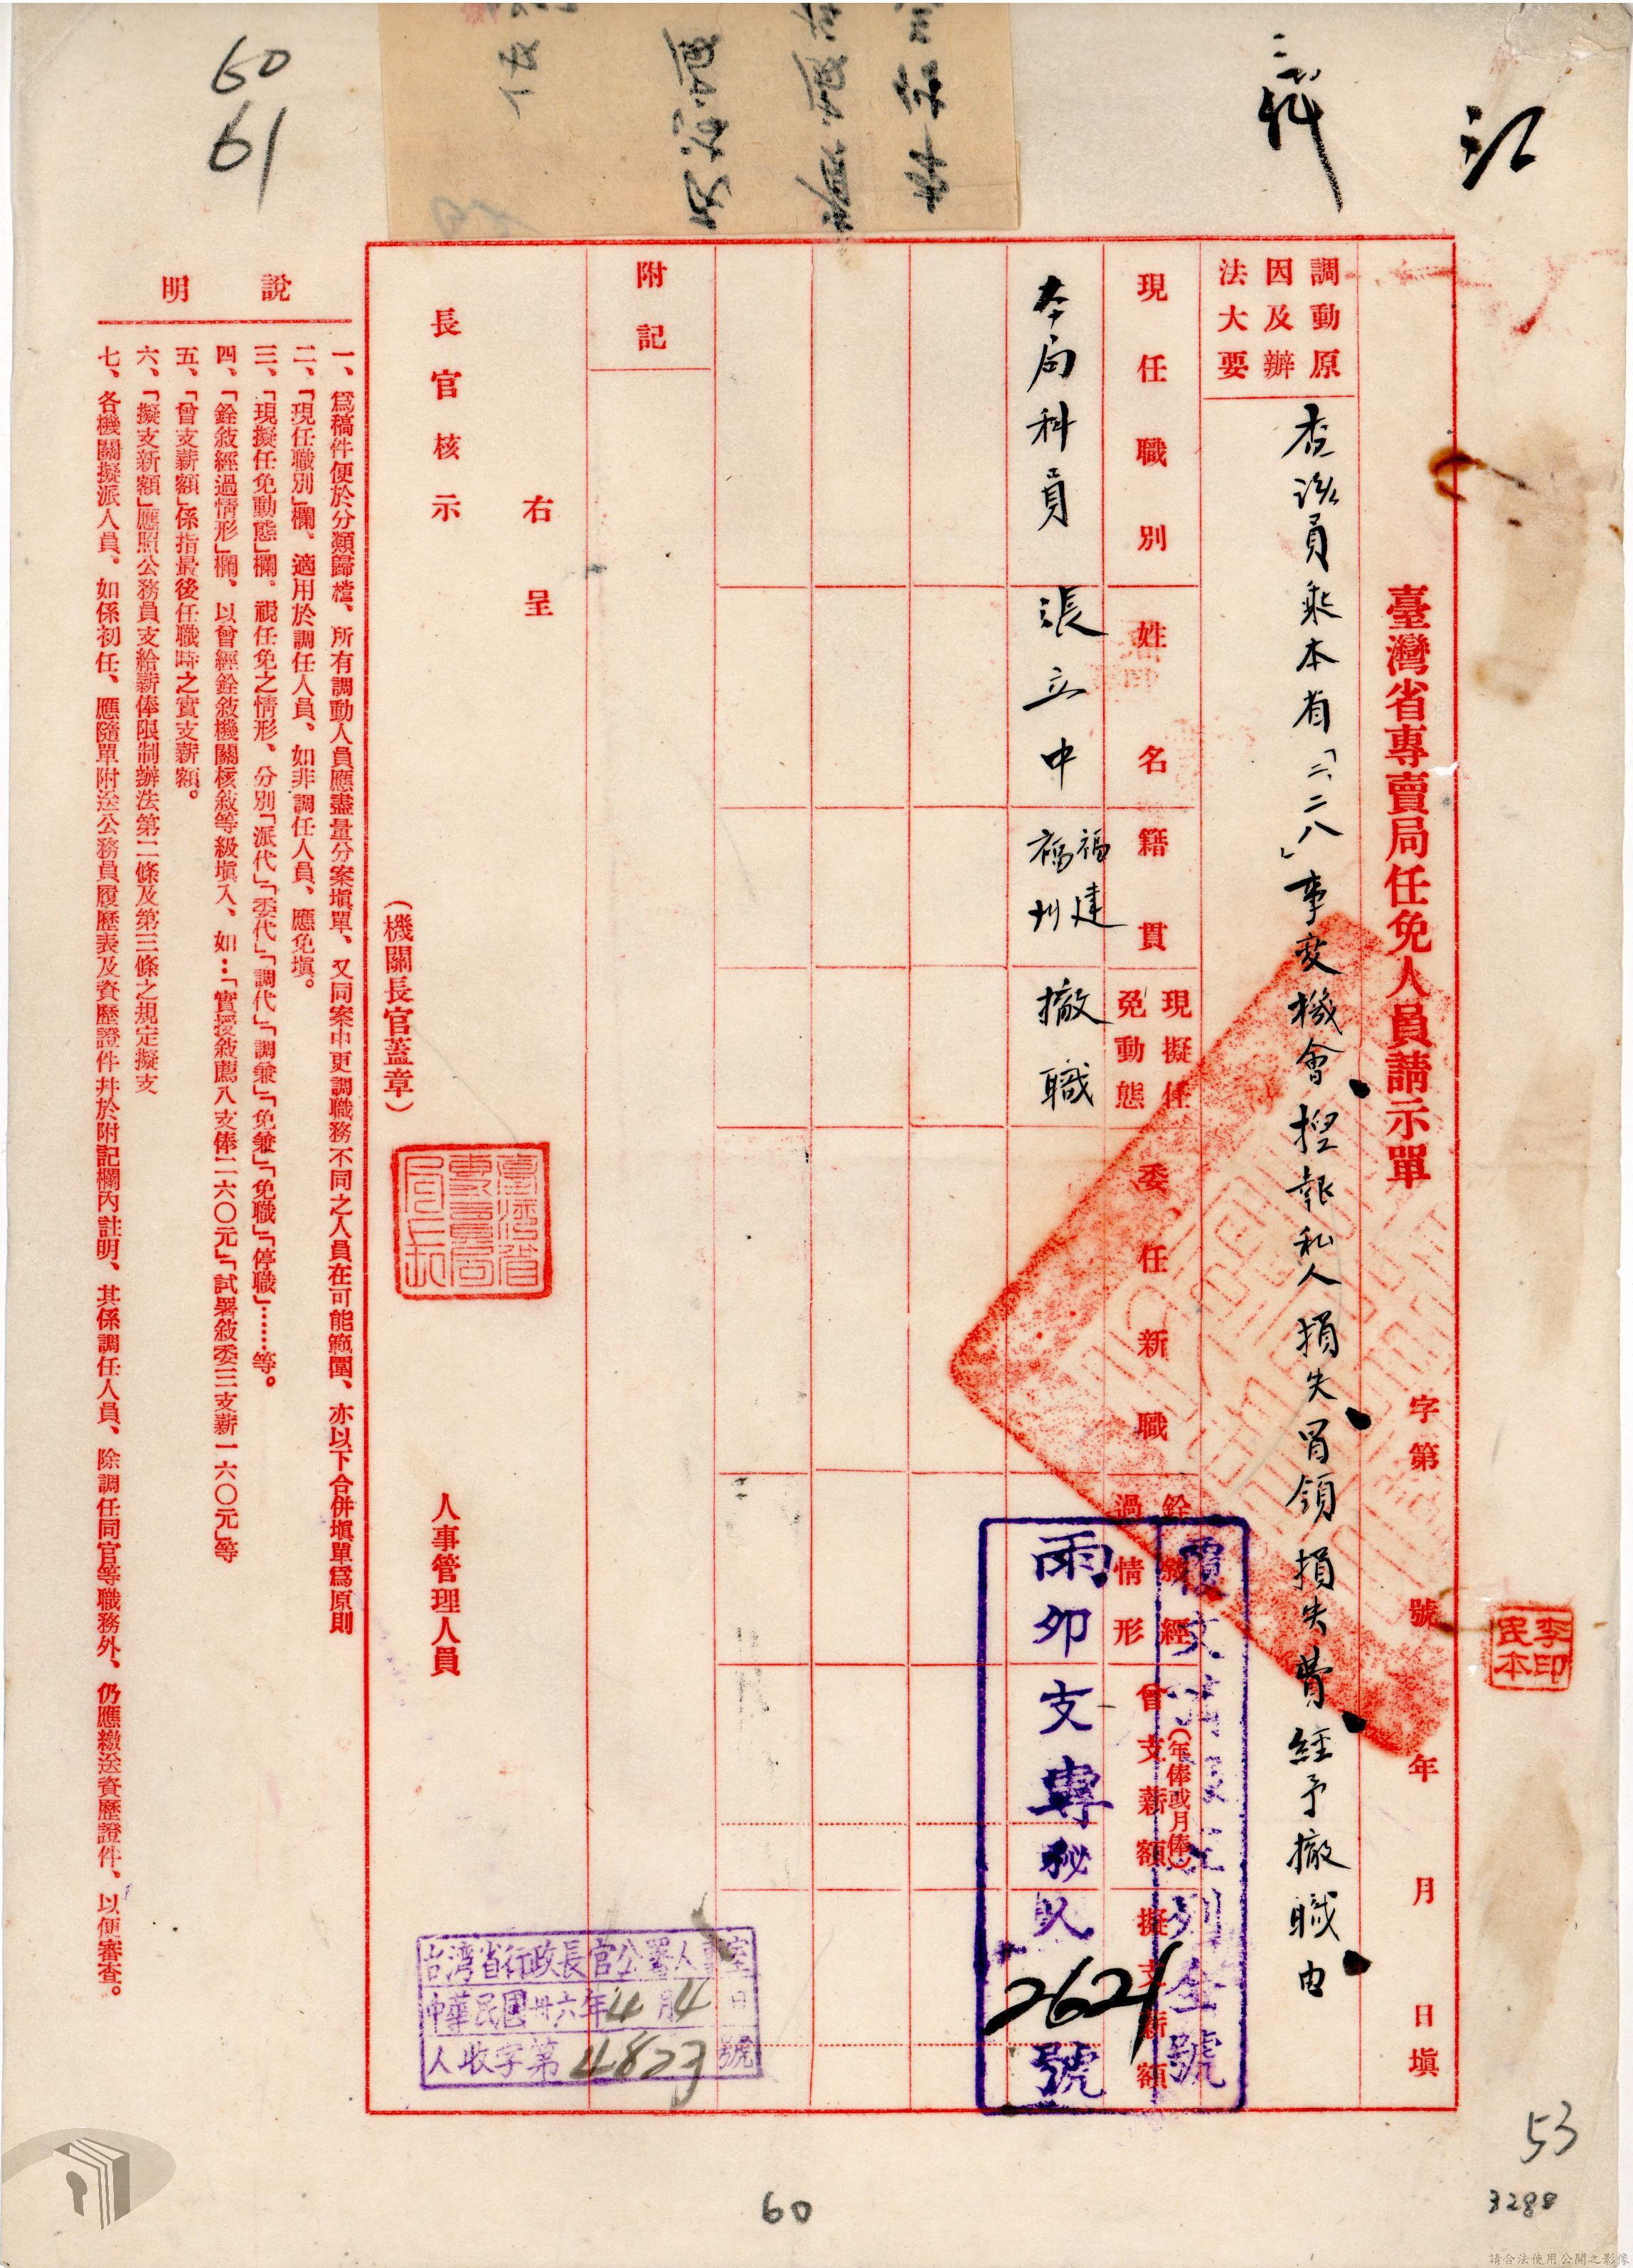 江
臺灣省專賣局任免人員請示單
字第 號 年 月 日塡
李印
民本
調動原
因及辦
法大要
查該員乘本省「二、二八」事变機會捏報私人損失冒領損失費經予撤職由
現任職別
姓名
籍貫
現擬任
免動態
委任新職
銓敍經
過情形
曾支薪額
(年俸或月俸)
擬支薪額
本局科員
張立中
福建
福州
撤職
覆文請報左列全號
雨卯支專秘人
2621
號
附記
右呈
長官核示
(機關長官蓋章)
臺灣省
專賣局
局長印
人事管理人員
台湾省行政長官公署人事室
中華民國卅六年4月4日
人收字第4823號
說明
一、爲稿件便於分類歸檔、所有調動人員應盡量分案塡單、又同案中更調職務不同之人員在可能範圍、亦以下合併塡單爲原則
二、「現任職別」欄、適用於調任人員、如非調任人員、應免塡。
三、「現擬任免動態」欄。視任免之情形、分別「派代」「委代」「調代」「調兼」「免兼」「免職」「停職」……等。
四、「銓敍經過情形」欄、以曾經銓敍機關核敍等級塡入、如…「實授敍薦八支俸二六〇元」「試署敍委三支薪一六〇元」等
五、「曾支薪額」係指最後任職時之實支薪額。
六、「擬支新額」應照公務員支給薪俸限制辦法第二條及第三條之規定擬支
七、各機關擬派人員、如係初任、應隨單附送公務員履歷表及資歷證件幷於附記欄內註明、其係調任人員、除調任同官等職務外、仍應繳送資歷證件、以便審查。
60
61
53
3288
60
請合法使用公開之影像